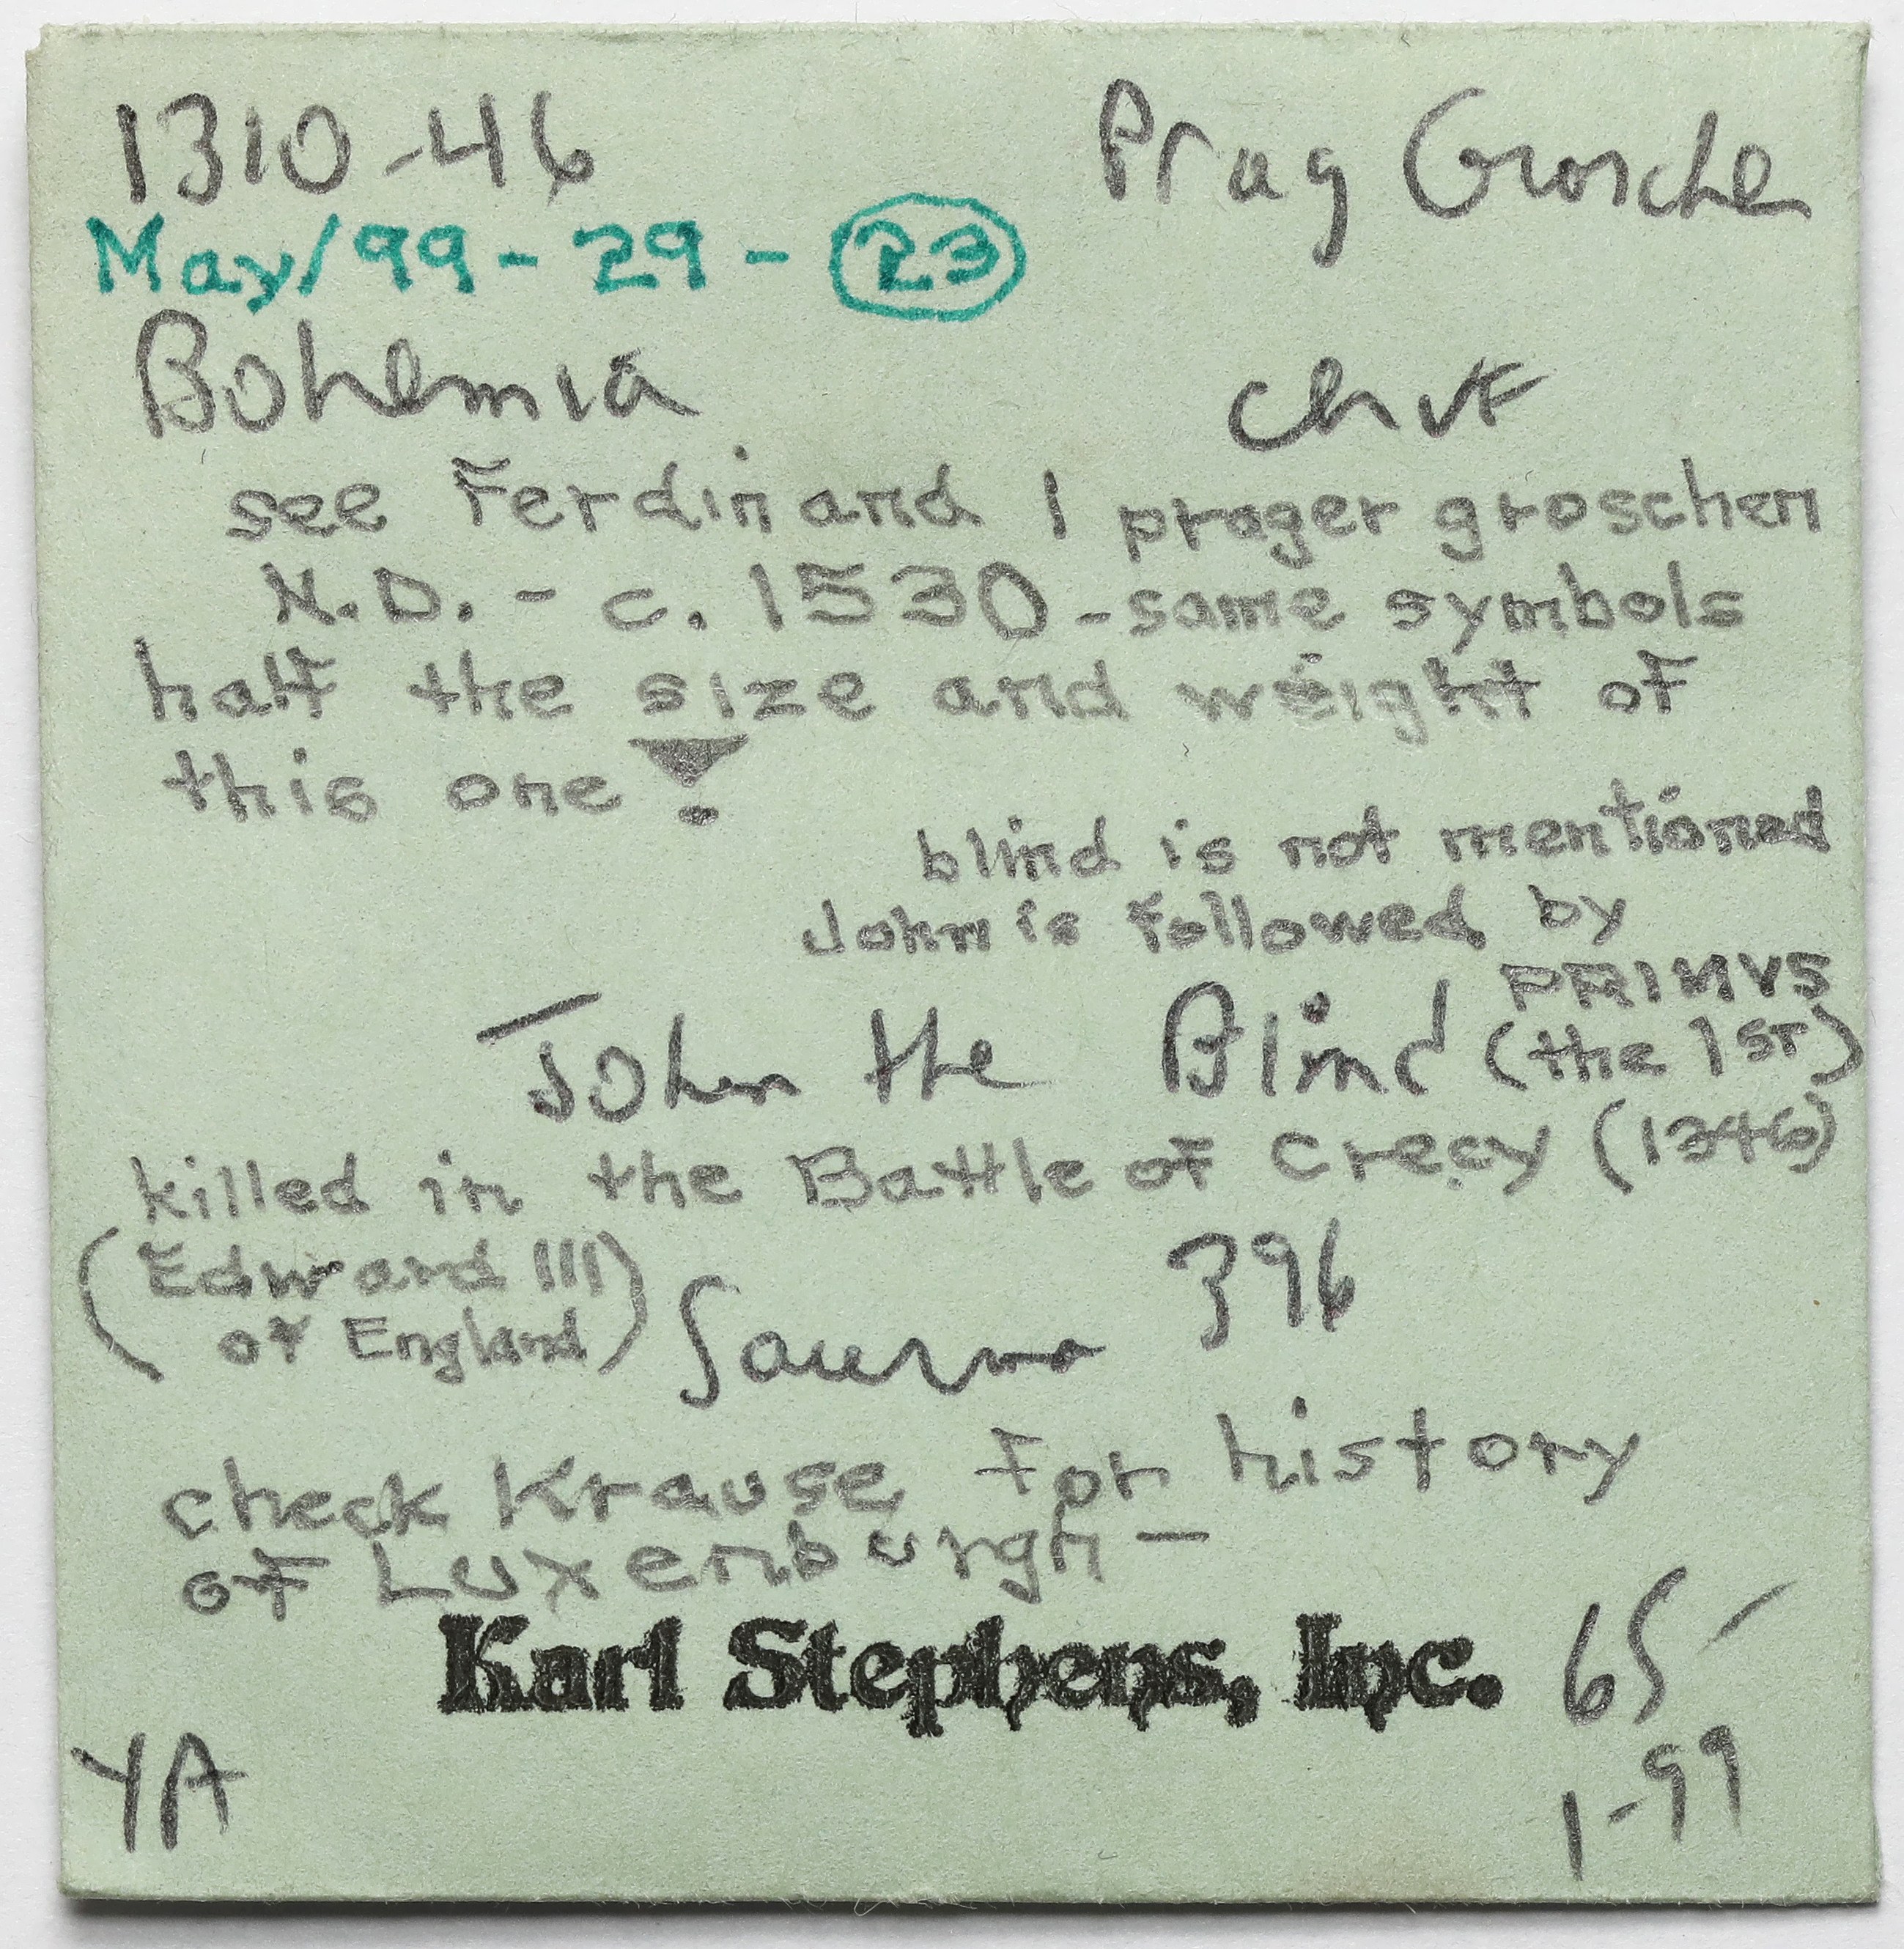 1310-46 Prag Groschen
May/99-29-23
Bohemia ch VF
see Ferdinand I prager groschen
N.D. - c. 1530 - same symbols
half the size and weight of
this one !
blind is not mentioned
John is followed by
PRIMVS
John the Blind (the 1ST)
killed in the Battle of Crecy (1346)
(Edward III
of England)
Saurma 396
check Krause for history
of Luxenburgh -
Karl Stephens, Inc. 65-
YA 1-99